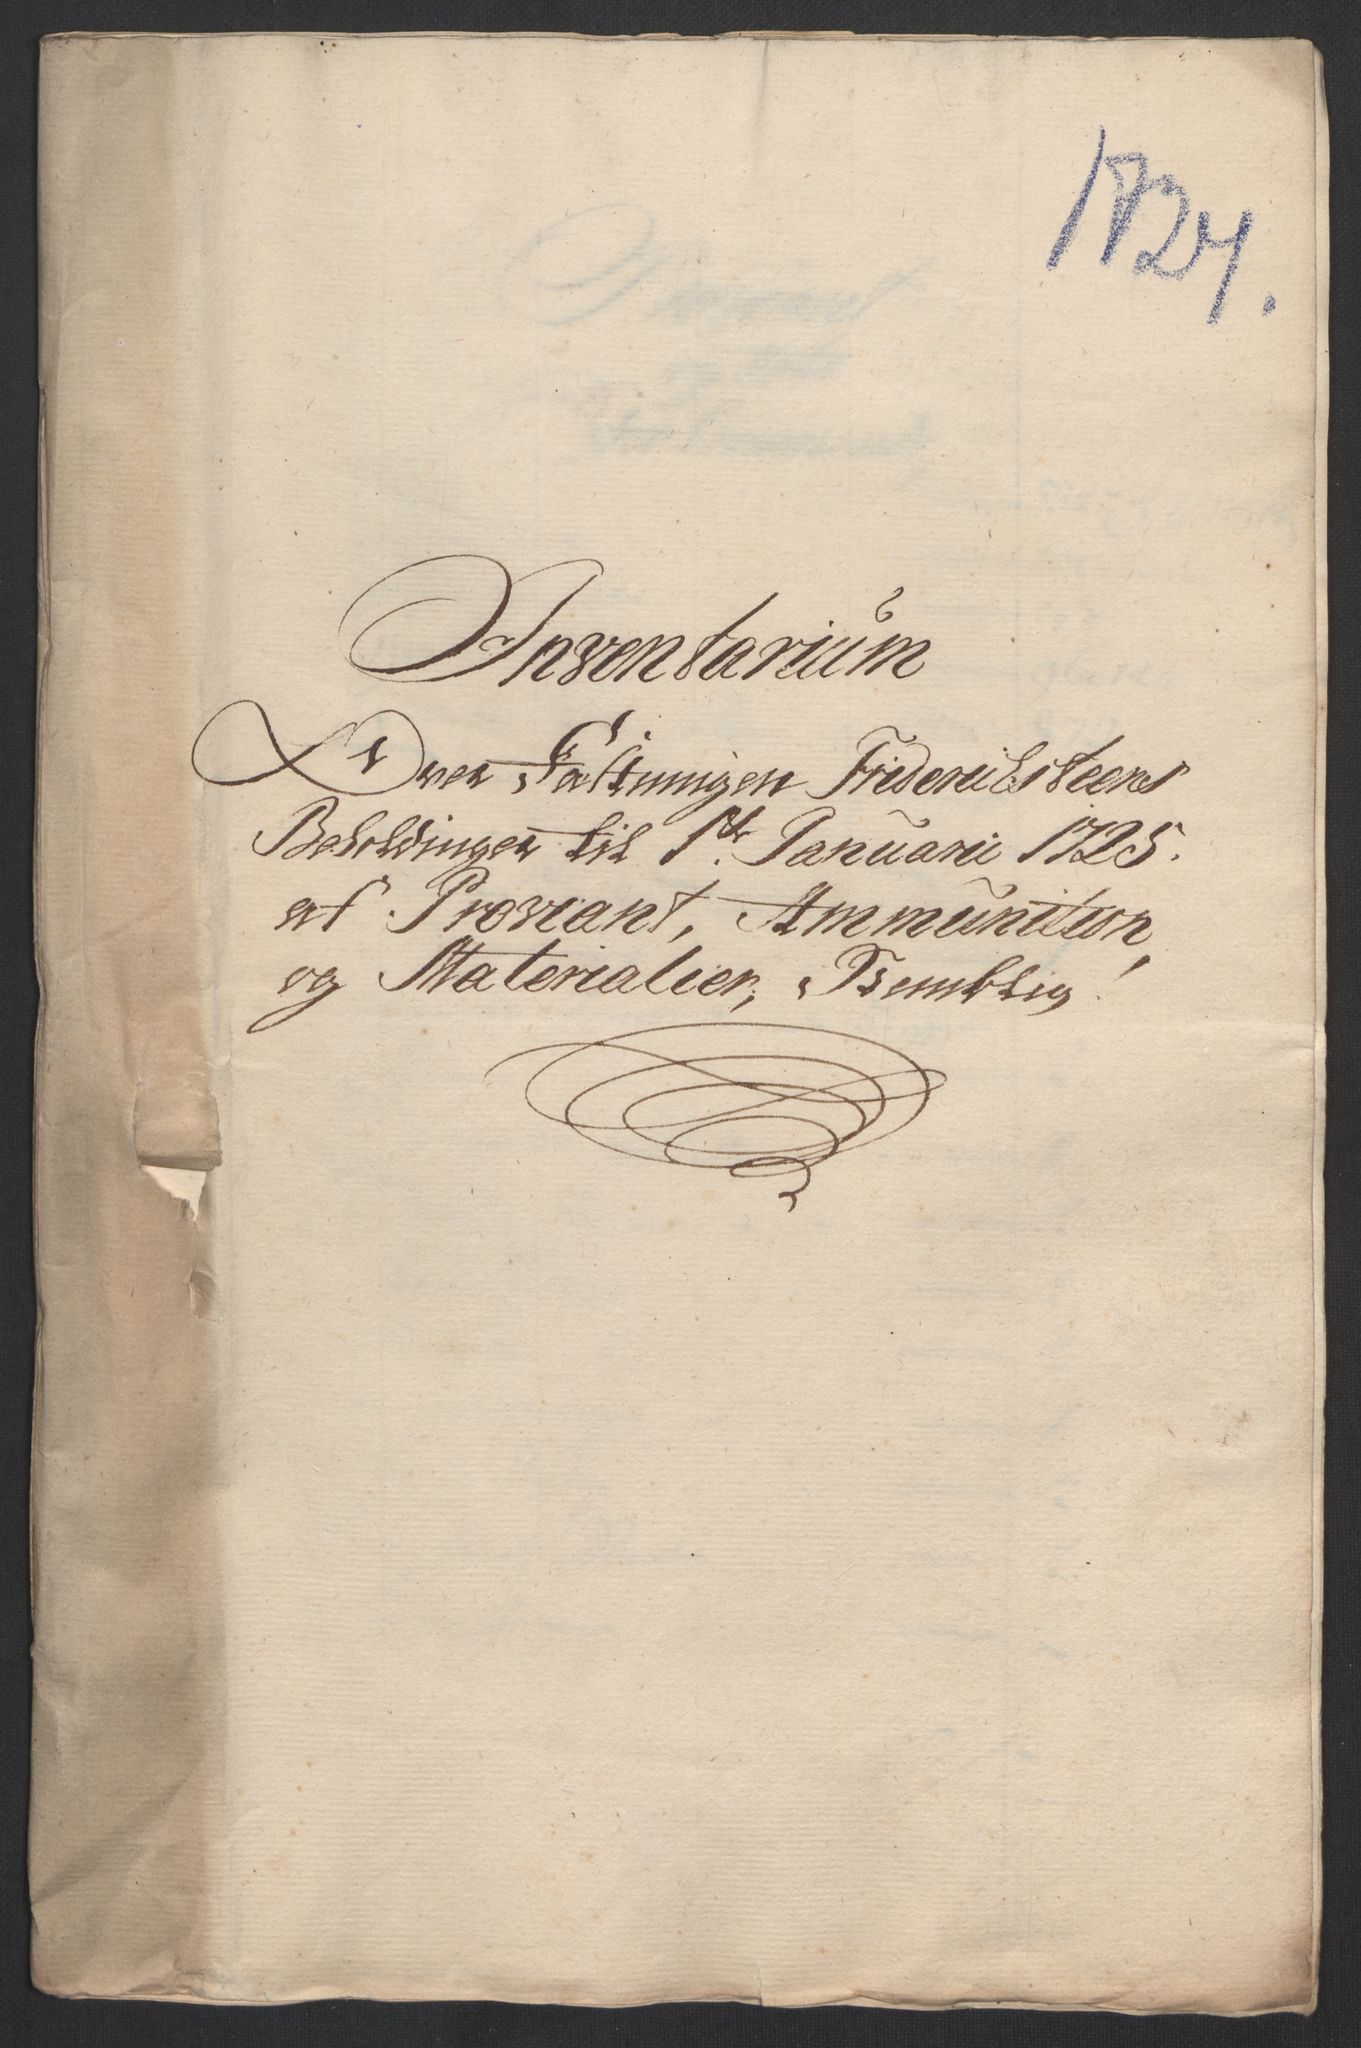 1724.
Inventarium
Over Fæstningen Friderichsteens
Beholdinger til 1ste Januarii 1725.
af Proviant, Ammunition,
og Materialier,